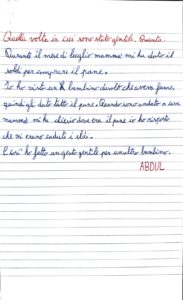 Quella volta in cui sono stato gentile.
Durante il mese di luglio mamma mi ha dato il
soldi per comprare il pane.
Io ho visto un bambino che aveva fame,
quindi gli dato tutto il pane. Quando sono andato a casa
mamma mi ha chiesto dove era il pane io ho risposto
che mi erano caduti i soldi.
E così ho fatto un gesto gentile per un altro bambino.
ABDUL